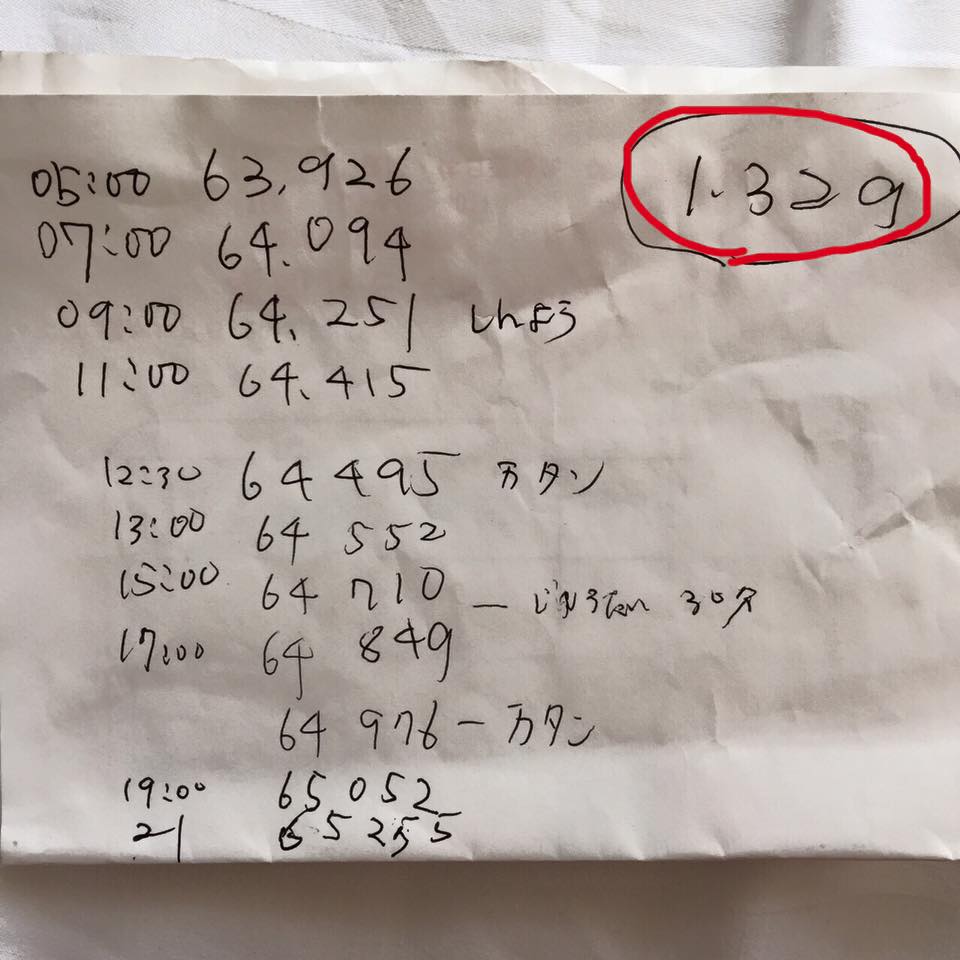 1.329
05:00 63,926
07:00 64.094
09:00 64,251
11:00 64.415
12:30 64 495 万タン
13:00 64 552
15:00 64 710 — 30分
17:00 64 849
64 976 — 万タン
19:00 65 052
21 65 255